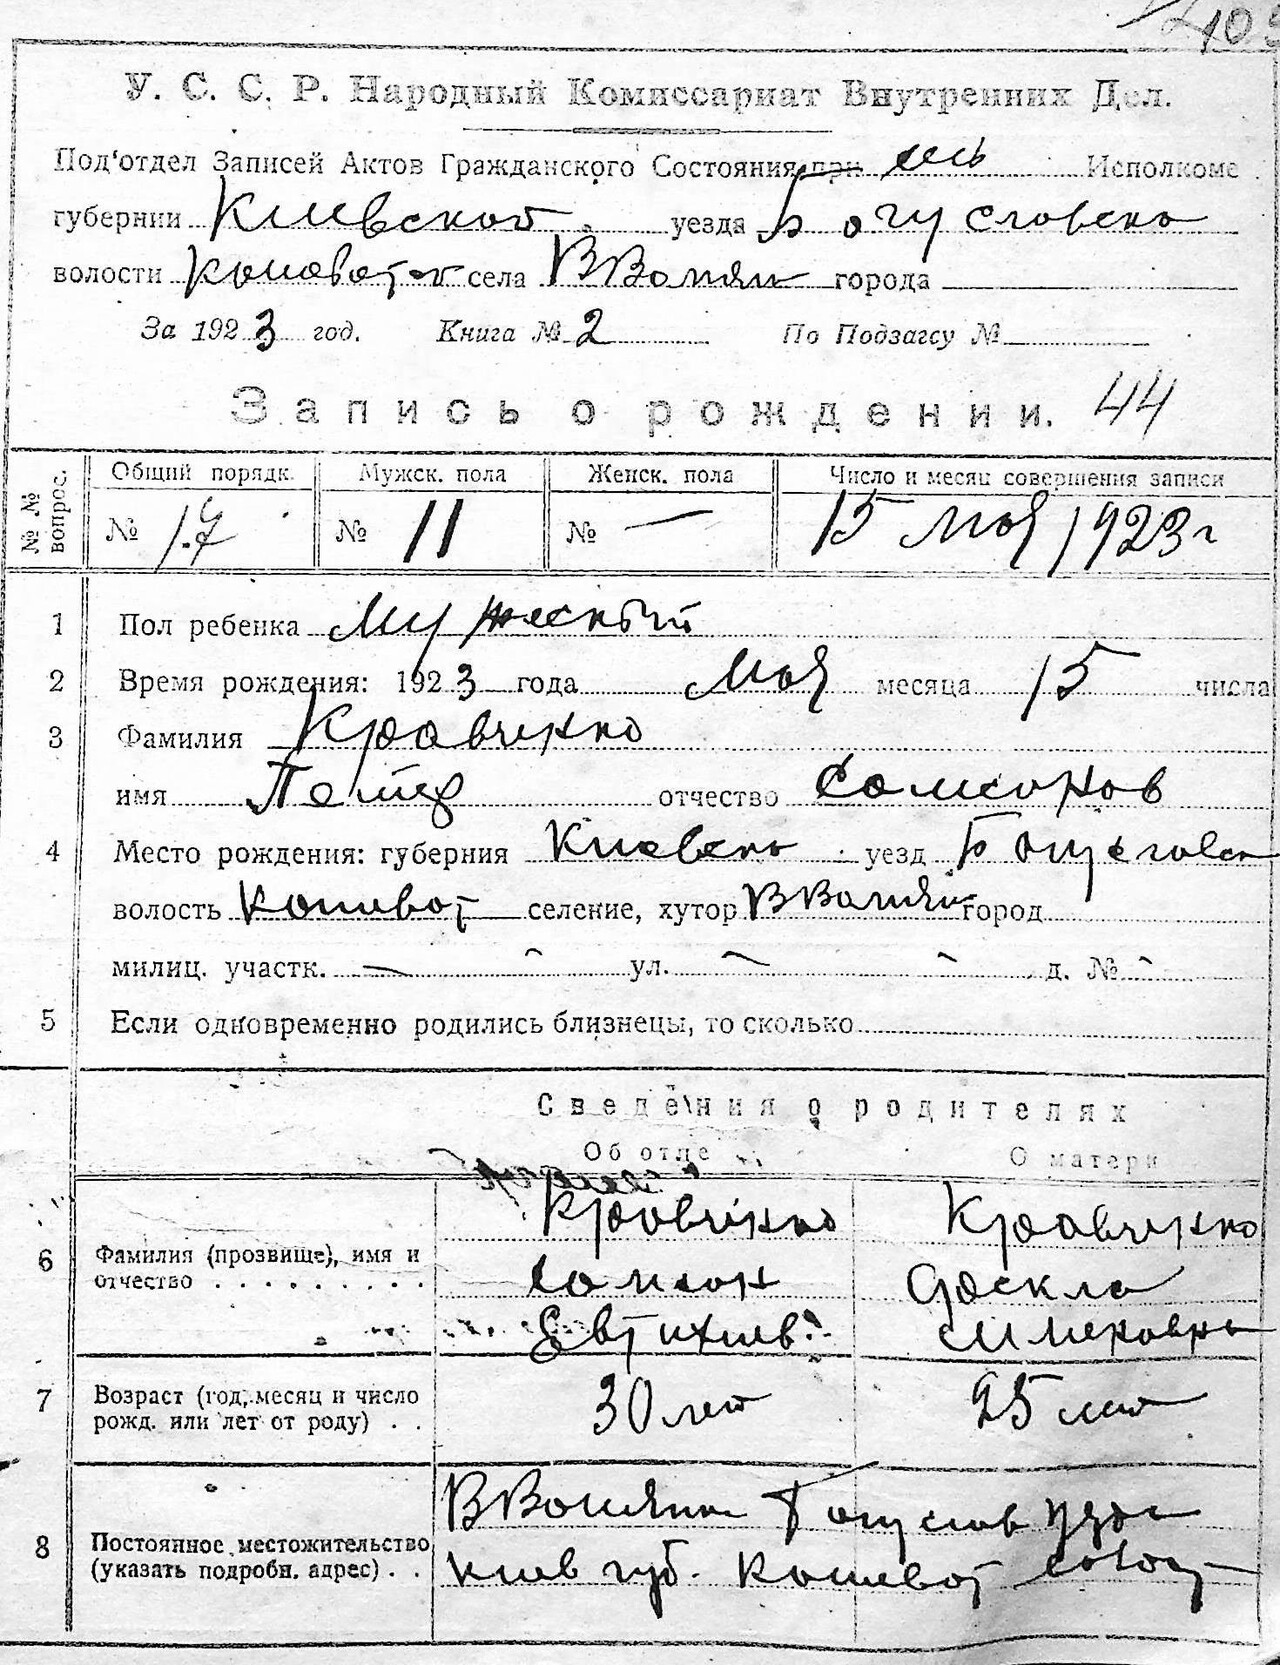 У. С. С. Р. Народный Комиссариат Внутренних Дел.
Под'отдел Записей Актов Гражданского Состояния при Исполкоме
губернии Киевской уезда Богуславско
волости села города
За 1923 год. Книга № 2 По Подзагсу №
Запись о рождении. 44
№ № вопрос. Общий порядк. Мужск. пола Женск. пола Число и месяц совершения записи
№ 17 № 11 № — 15 мая 1923 г
1 Пол ребенка Мужеский
2 Время рождения: 1923 года Мая месяца 15 числа
3 Фамилия Кравченко
имя Петр отчество Самсонов
4 Место рождения: губерния Киевско уезд Богуславск
волость селение, хутор город
милиц. участк. — - ул. - - д. № -
5 Если одновременно родились близнецы, то сколько
Сведения о родителях
Об отце О матери
Кравченко Кравченко
6 Фамилия (прозвище), имя и отчество Самсон
Евтихиев
7 Возраст (год, месяц и число рожд. или лет от роду) 30 лет 25 лет
8 Постоянное местожительство (указать подробн. адрес)
Киев губ.